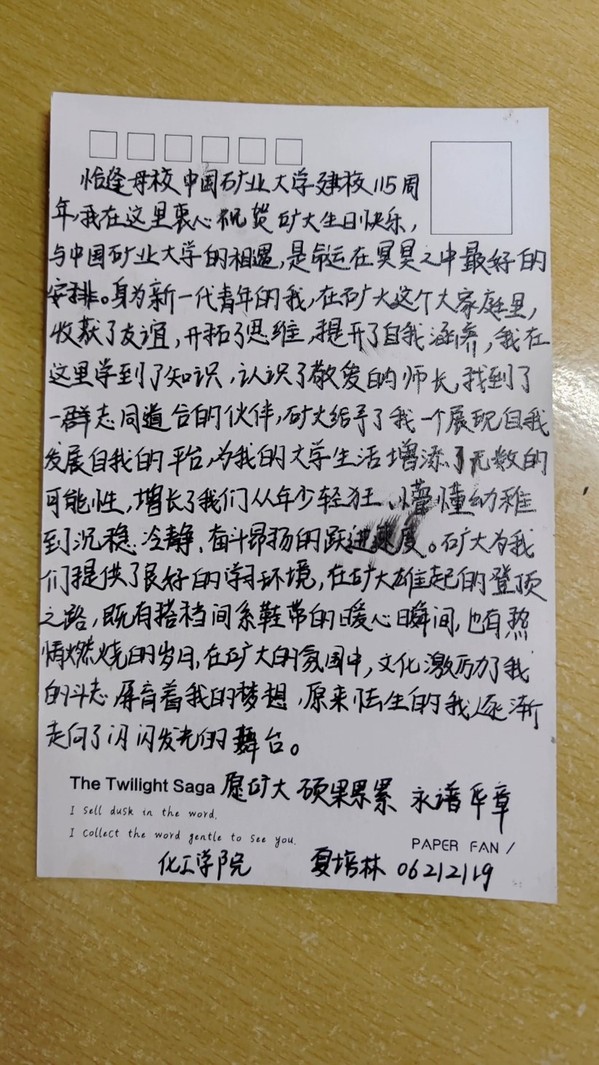 恰逢母校中国矿业大学建校115周
年,我在这里衷心祝贺矿大生日快乐,
与中国矿业大学的相遇,是命运在冥冥之中最好的
安排。身为新一代青年的我,在矿大这个大家庭里,
收获了友谊,开拓了思维,提升了自我涵养,我在
这里学到了知识,认识了敬爱的师长,找到了
一群志同道合的伙伴,矿大给予了我一个展现自我
发展自我的平台,为我的大学生活增添了无数的
可能性,增长了我们从年少轻狂、懵懂幼稚
到沉稳冷静、奋斗昂扬的跃进速度。矿大为我
们提供了良好的学习环境,在矿大雄起的登顶
之路,既有搭档间系鞋带的暖心瞬间,也有热
情燃烧的岁月,在矿大的氛围中,文化激励了我
的斗志,孕育着我的梦想,原来陌生的我逐渐
走向了闪闪发光的舞台。
The Twilight Saga 愿矿大 硕果累累 永谱华章
I sell dusk in the word.
I collect the word gentle to see you.
PAPER FAN /
化工学院 夏培林 06212119